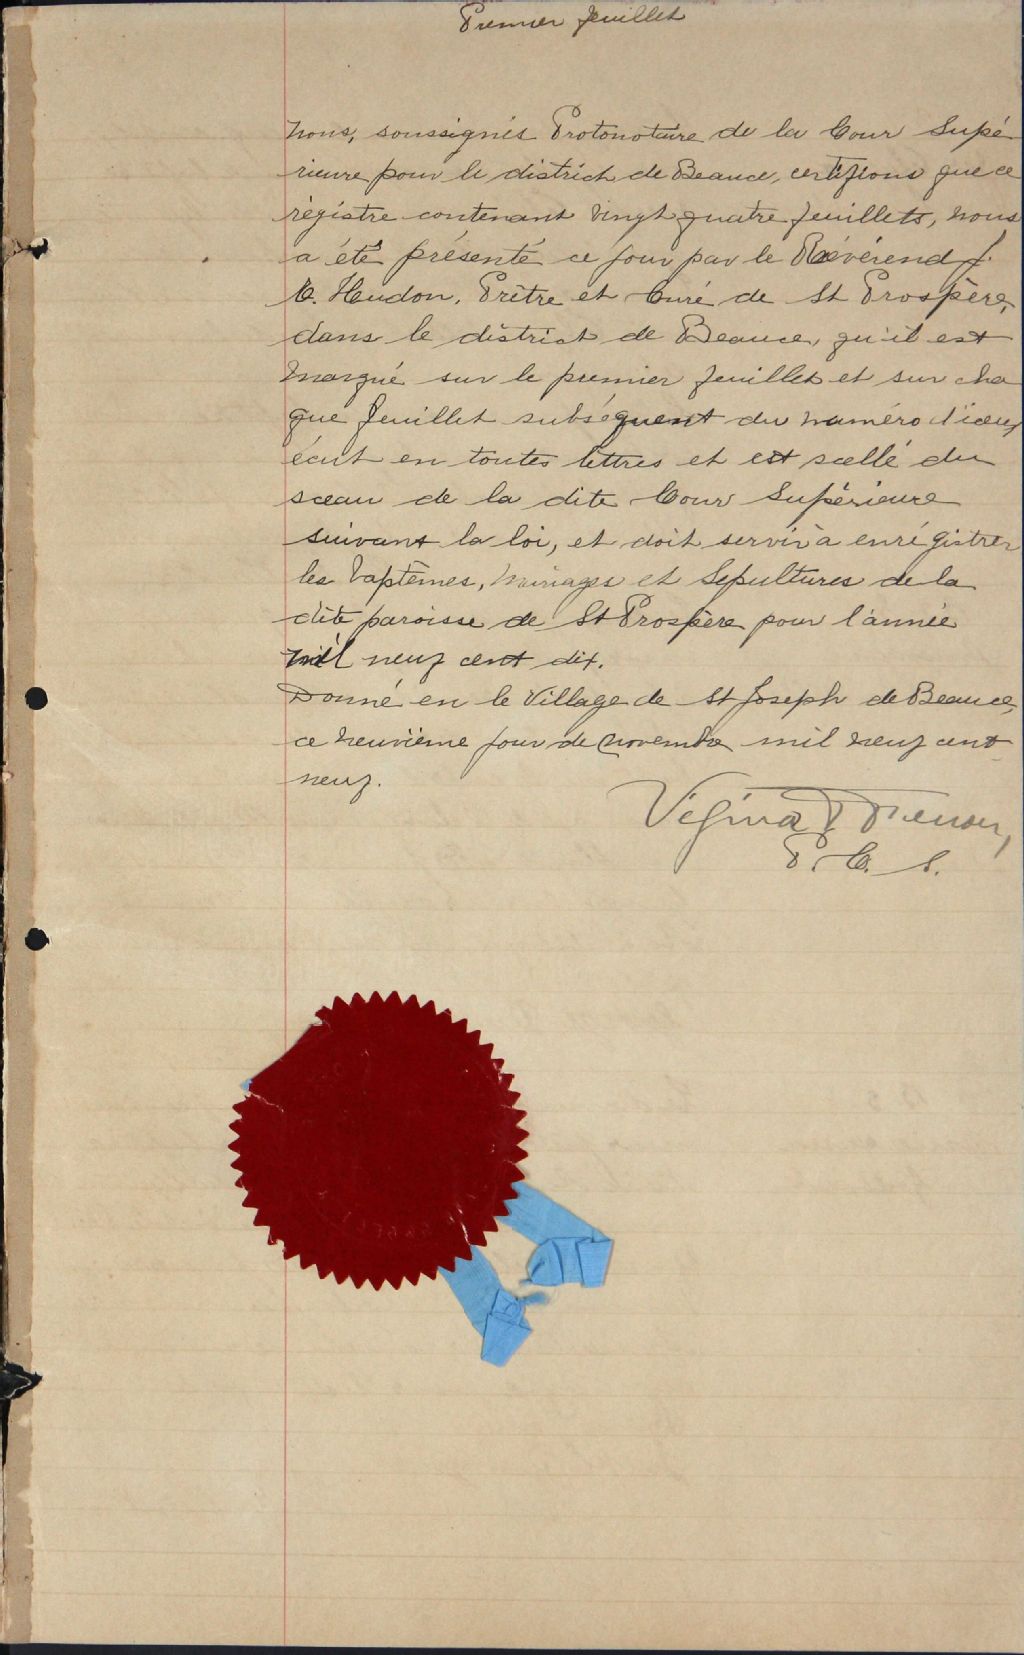 Premier feuillet
Nous, soussignés Protonotaire de la Cour Supé
rieure pour le district de Beauce, certifions que ce
régistre contenant vingt quatre feuillets, nous
a été présenté ce jour par le Révérend J.
C. Heudon, Prêtre et Curé de St Prospère,
dans le district de Beauce, qu'il est
marqué sur le premier feuillet et sur cha
que feuillet subséquent du numéro d'iceux
écrit en toutes lettres et est scellé du
sceau de la dite Cour Supérieure
suivant la loi, et doit servir à enrégistrer
les baptêmes, mariages et Sepultures de la
dite paroisse de St Prospère pour l'année
mil neuf cent dix.
Donné en le Village de St Joseph de Beauce,
ce neuvième jour de novembre mil neuf cent
neuf.
Vézina
P. C. S.